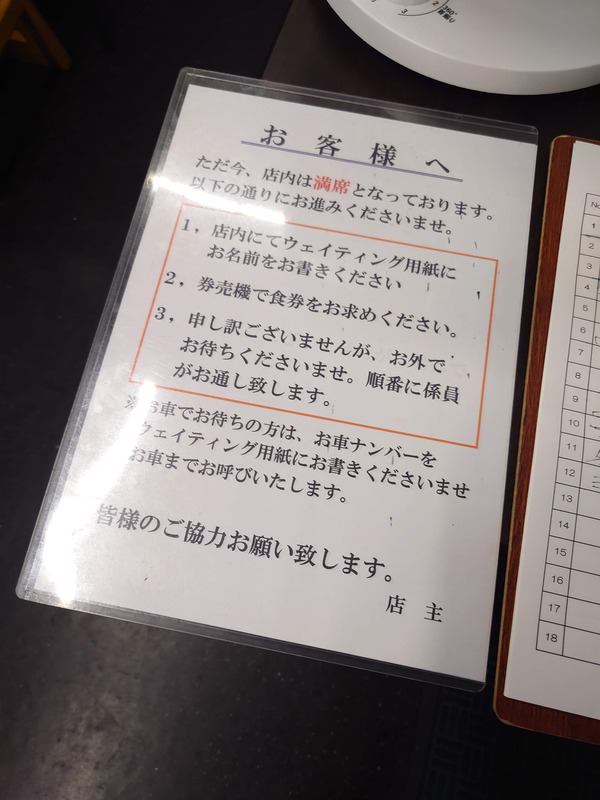 お客様へ
ただ今、店内は満席となっております。
以下の通りにお進みくださいませ。
1，店内にてウェイティング用紙に
お名前をお書きください
2，券売機で食券をお求めください。
3，申し訳ございませんが、お外で
お待ちくださいませ。順番に係員
がお通し致します。
※お車でお待ちの方は、お車ナンバーを
ウェイティング用紙にお書きくださいませ
お車までお呼びいたします。
皆様のご協力お願い致します。
店主
3
2
360°
首振り
No
1
2
3
4
5
6
7
8
9
10
11
12
13
14
15
16
17
18